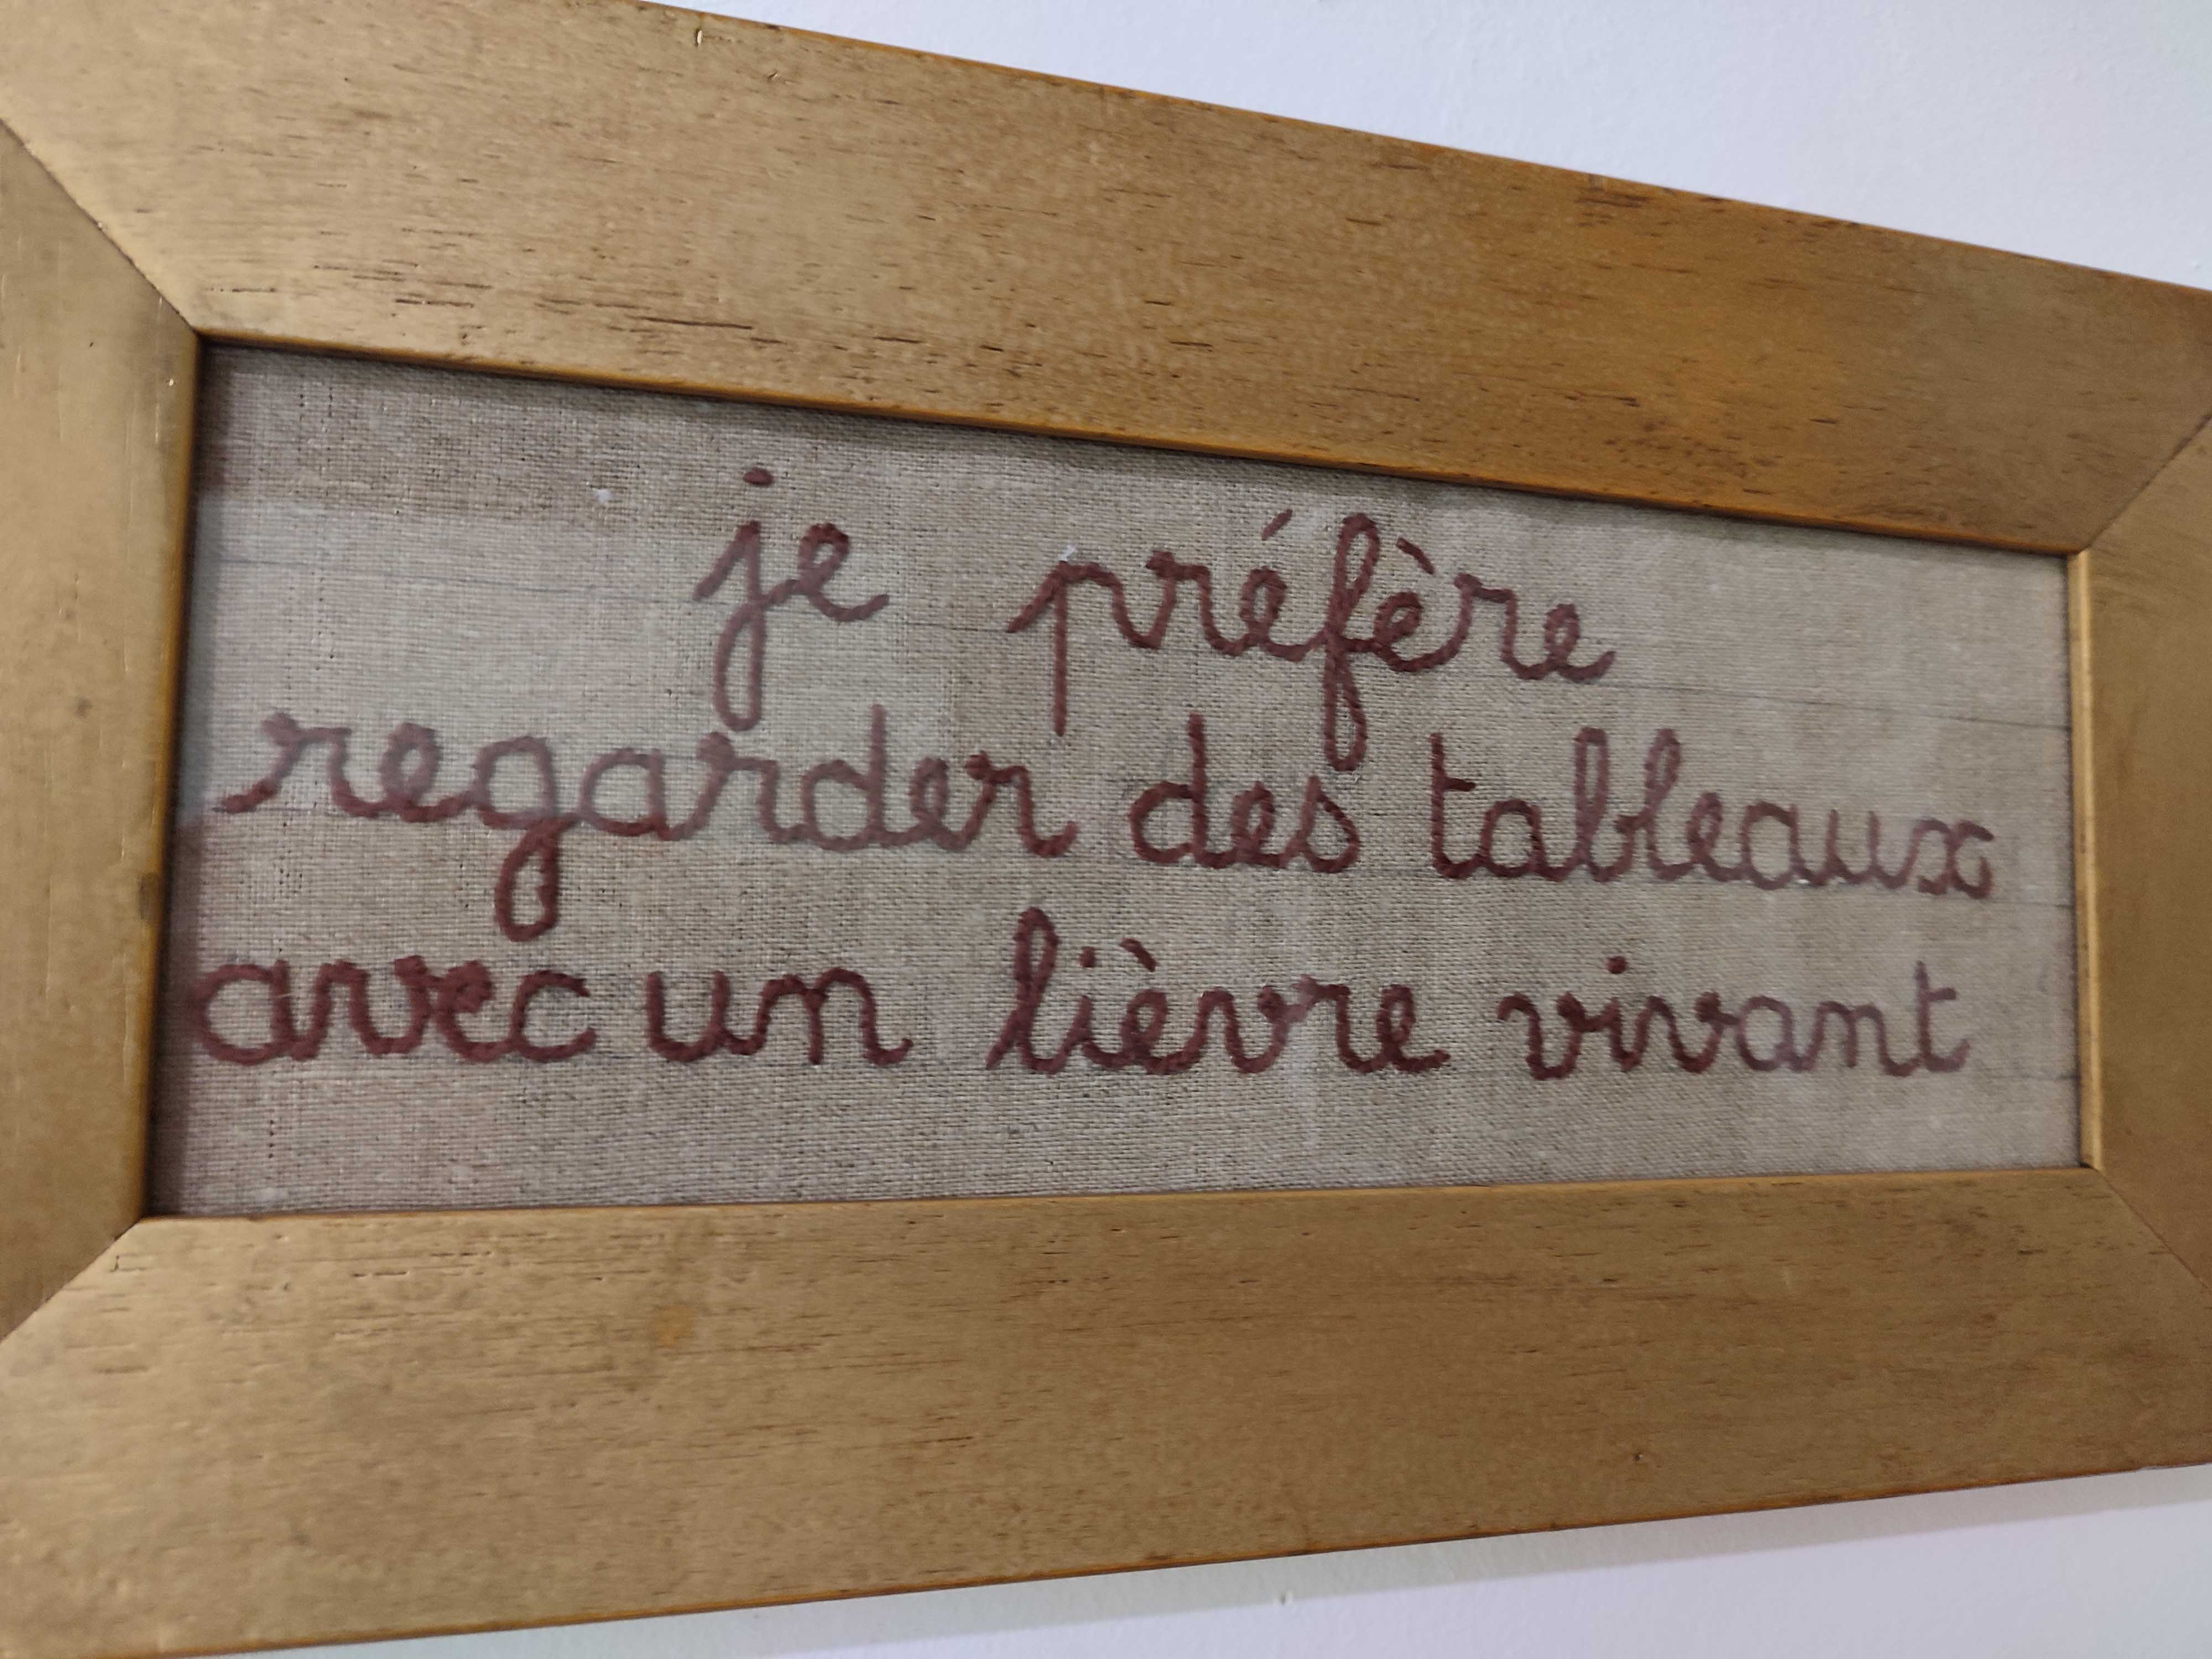 je préfère
regarder des tableaux
avec un lièvre vivant